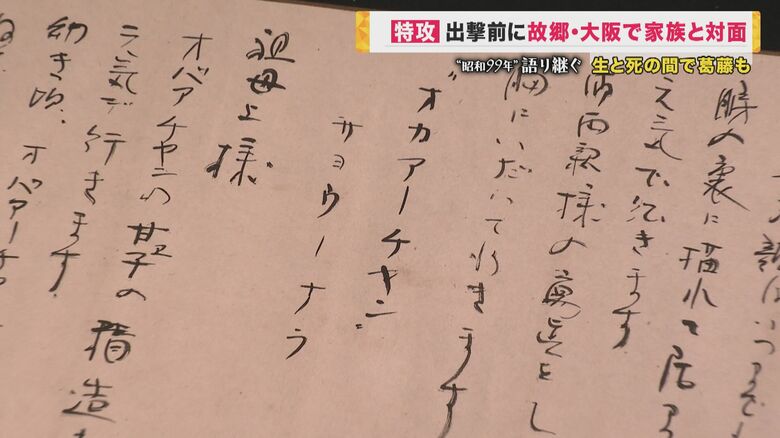 特攻 出撃前に故郷・大阪で家族と対面
“昭和99年”語り継ぐ 生と死の間で葛藤も
はいつまでも
瞼の裏に描れて居る
元気で征きます
御両親様の写真をし
胸にいだいて行きます
"オカアーチャン"
サヨウーナラ
祖母上様
オバアチャンの甘子の精造も
元気デ行きます
幼き頃、オバアーチ